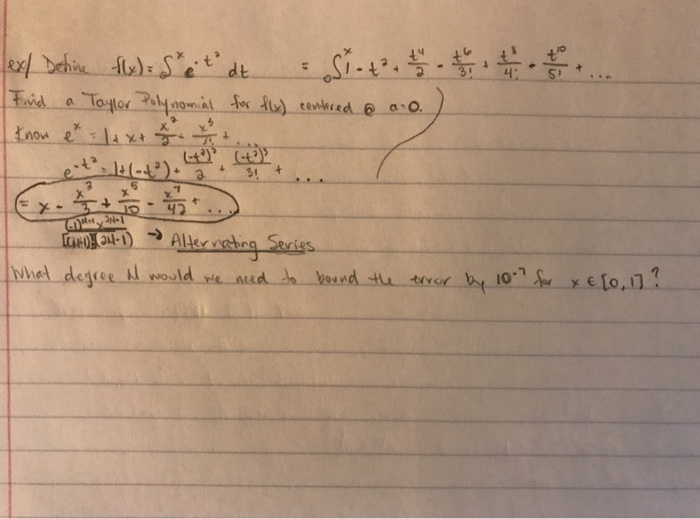 ex/ Define f(x) = ∫₀ˣ e^{-t²} dt = ∫₀ˣ 1 - t² + t⁴/2 - t⁶/3! + t⁸/4! - t¹⁰/5! + ...
Find a Taylor Polynomial for f(x) centered @ a=0.
Know e^x = 1 + x + x²/2 + x³/3! + ...
e^{-t²} = 1 + (-t²) + (-t²)²/2 + (-t²)³/3! + ...
= x - x³/3 + x⁵/10 - x⁷/42 + ...
(-1)^{N+1} x^{2N-1} / [(N-1)!](2N-1) → Alternating Series
What degree N would we need to bound the error by 10⁻⁷ for x ∈ [0,1]?